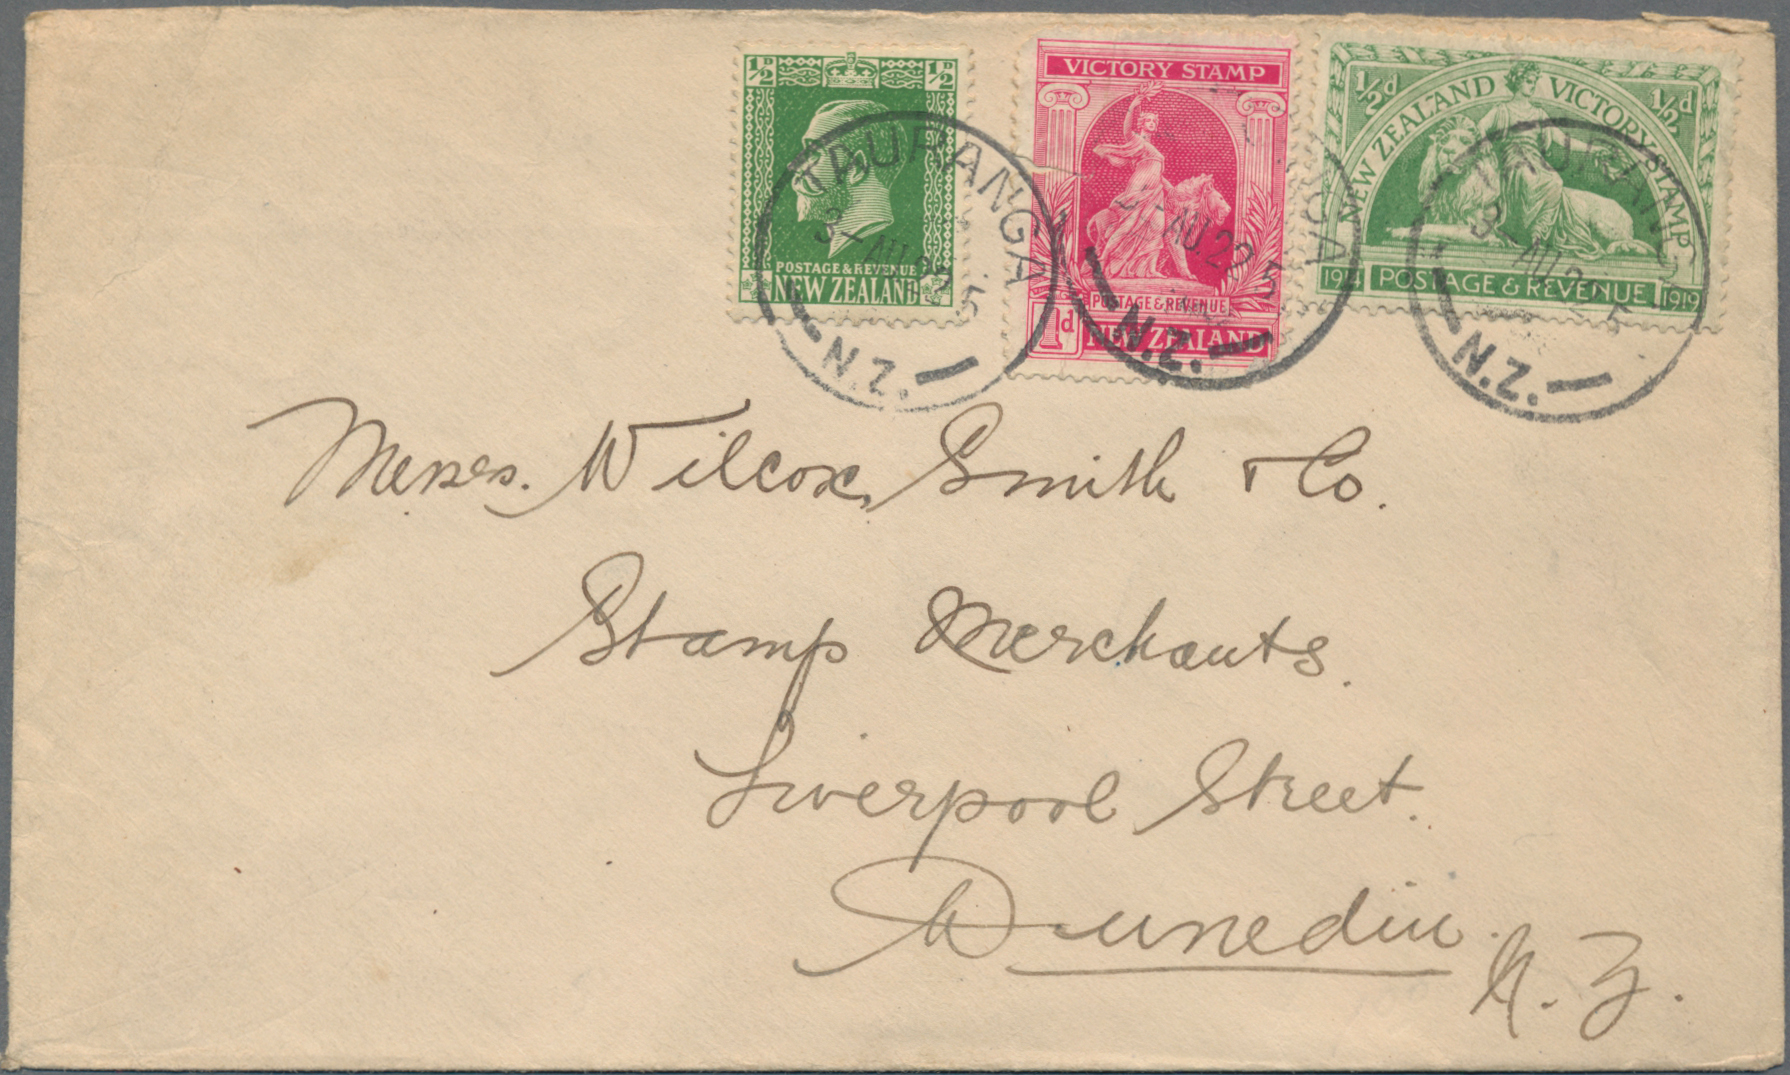 ½D ½D
POSTAGE & REVENUE
NEW ZEALAND
VICTORY STAMP
POSTAGE & REVENUE
1d NEW ZEALAND
½d NEW ZEALAND VICTORY STAMP ½d
1914 POSTAGE & REVENUE 1919
TAURANGA
3 - AU 22 5
N.Z.
AU 22 5
N.Z.
TAURANG
3 - AU 2 5
N.Z.
Messrs. Wilcox, Smith & Co.
Stamp Merchants.
Liverpool Street.
Dunedin.
N. Z.